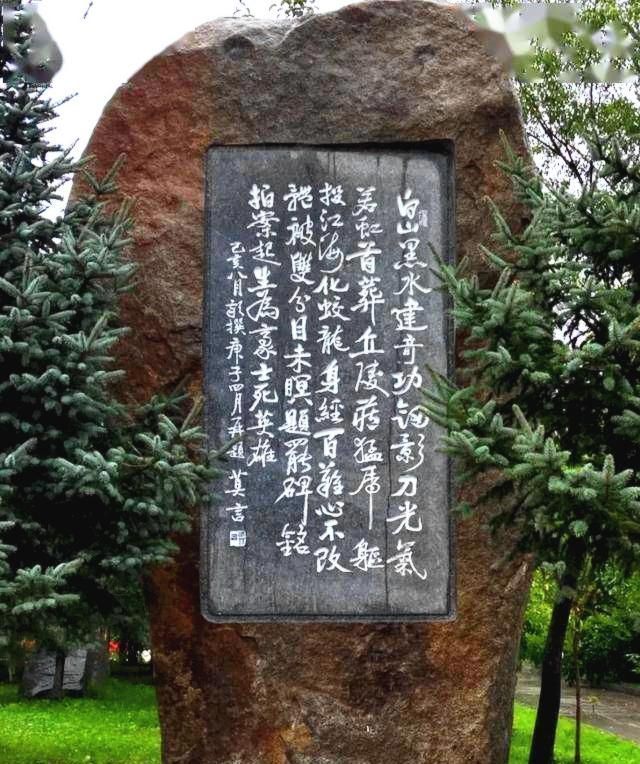 白山黑水建奇功釼影刀光氣
若虹首葬丘陵藏猛虎軀
投江海化蛟龍身經百難心不改
體被雙分目未瞑題罷碑銘
拍案起生為豪士死英雄
己亥八月敬撰庚子四月再題 莫言